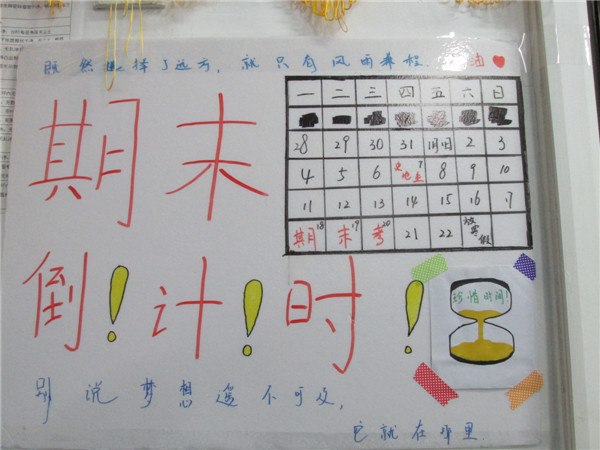 既然选择了远方，就只有风雨兼程. 油
期末
一 二 三 四 五 六 日
28 29 30 31 1月1日 2 3
4 5 6 史地生7 8 9 10
11 12 13 14 15 16 17
期18 末19 考20 21 22 放寒假
倒!计!时!
珍惜时间!
别说梦想遥不可及,
它就在那里.